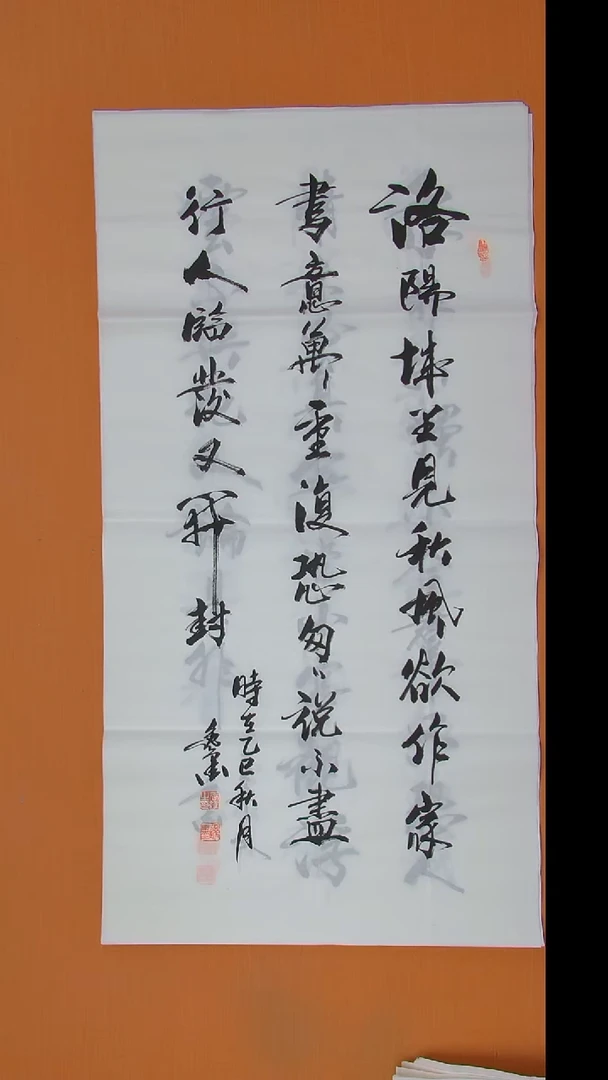 洛陽城里見秋風欲作家
書意萬重復恐匆匆說不盡
行人臨發又開封
時在乙巳秋月